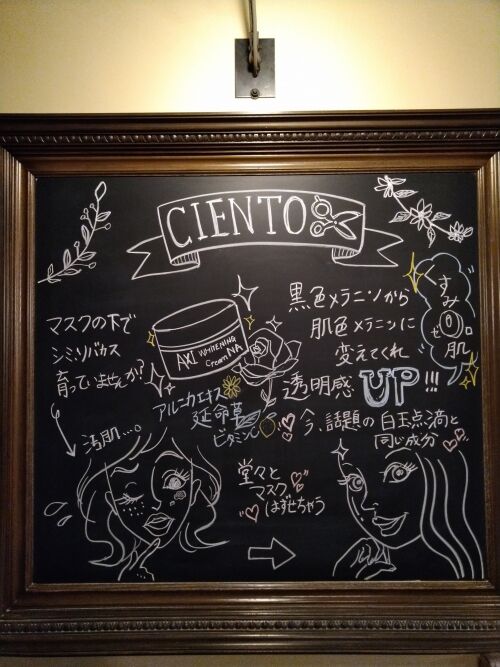 CIENTO
マスクの下で
シミソバカス
育っていませんか?
AKI WHITENING
Cream NA
アルニカエキス
延命草
ビタミンC
黒色メラニンから
肌色メラニンに
変えてくれ
透明感 UP!!!
すみ0肌
ゼロ
今、話題の白玉点滴と
同じ成分
肌...
堂々と
マスク
はずせちゃう